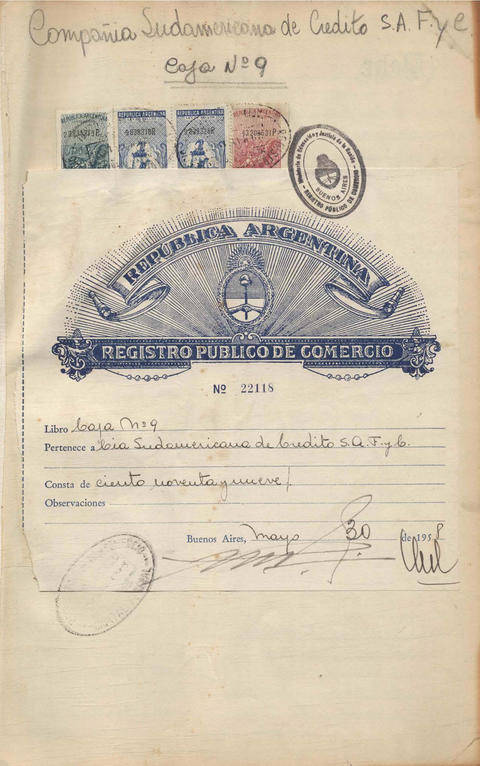 Compañia Sudamericana de Credito S.A. F. y C.
Caja Nº 9
REPUBLICA ARGENTINA REPUBLICA ARGENTINA
Ministerio de Educación y Justicia de la Nación
BUENOS AIRES
REGISTRO PÚBLICO DE COMERCIO
REPUBLICA ARGENTINA
REGISTRO PUBLICO DE COMERCIO
Nº 22118
Libro Caja Nº 9
Pertenece a Cia Sudamericana de Credito S.A. F. y C.
Consta de ciento noventa y nueve/
Observaciones
Buenos Aires, Mayo 30 de 195